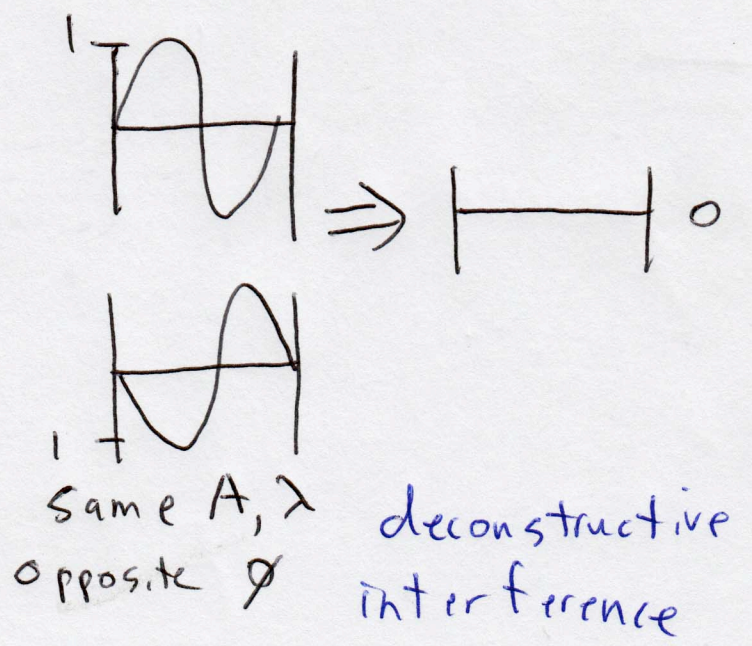 1
0
1
same A, λ
opposite Ø
deconstructive
interference